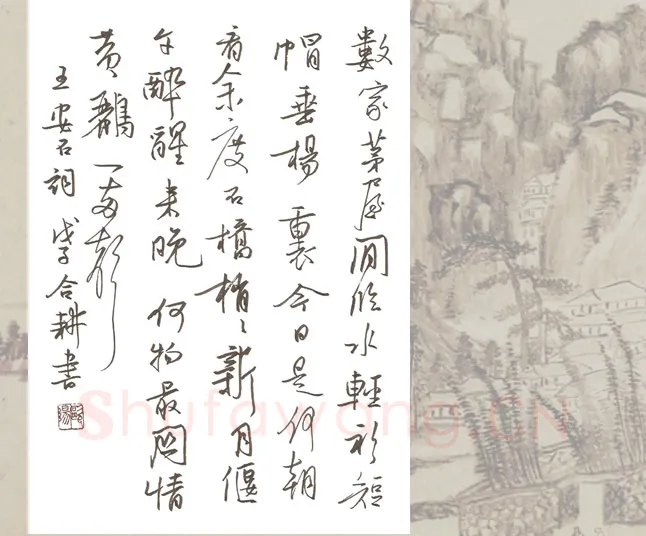 數家茅屋閒臨水輕衫短
帽垂楊裏今日是何朝
看余度石橋梢〻新月偃
午醉醒來晚何物最關情
黃鸝一兩聲
王安石詞戊子合耕書
Shufawang.CN